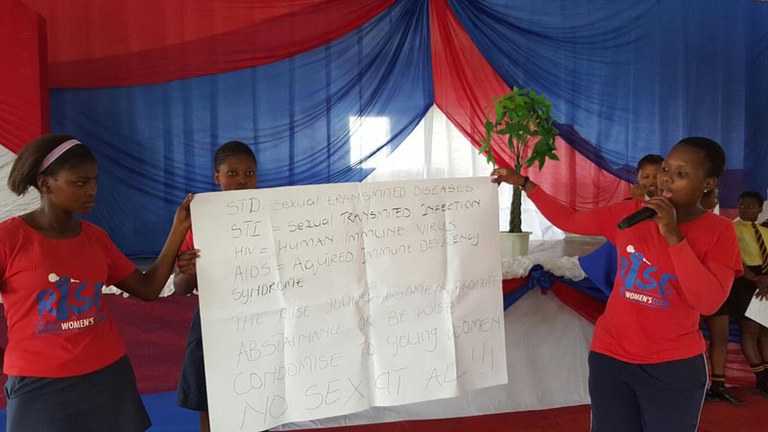 STD= Sexual TRANSMITED DISEASES
STI = Sexual TRANSMITED INFECTION
HIV = HUMAN IMMUNE VIRUS
AIDS = AQUIRED IMMUNE DEFICENCY
SYNDROME
THE RISE YOUNG WOMEN PROMOTE
ABSTAINANCE OR BE WISE
CONDOMISE TO YOUNG WOMEN
NO SEX AT ALL!!!
RISE
WOMEN'S
RISE
WOMEN'S